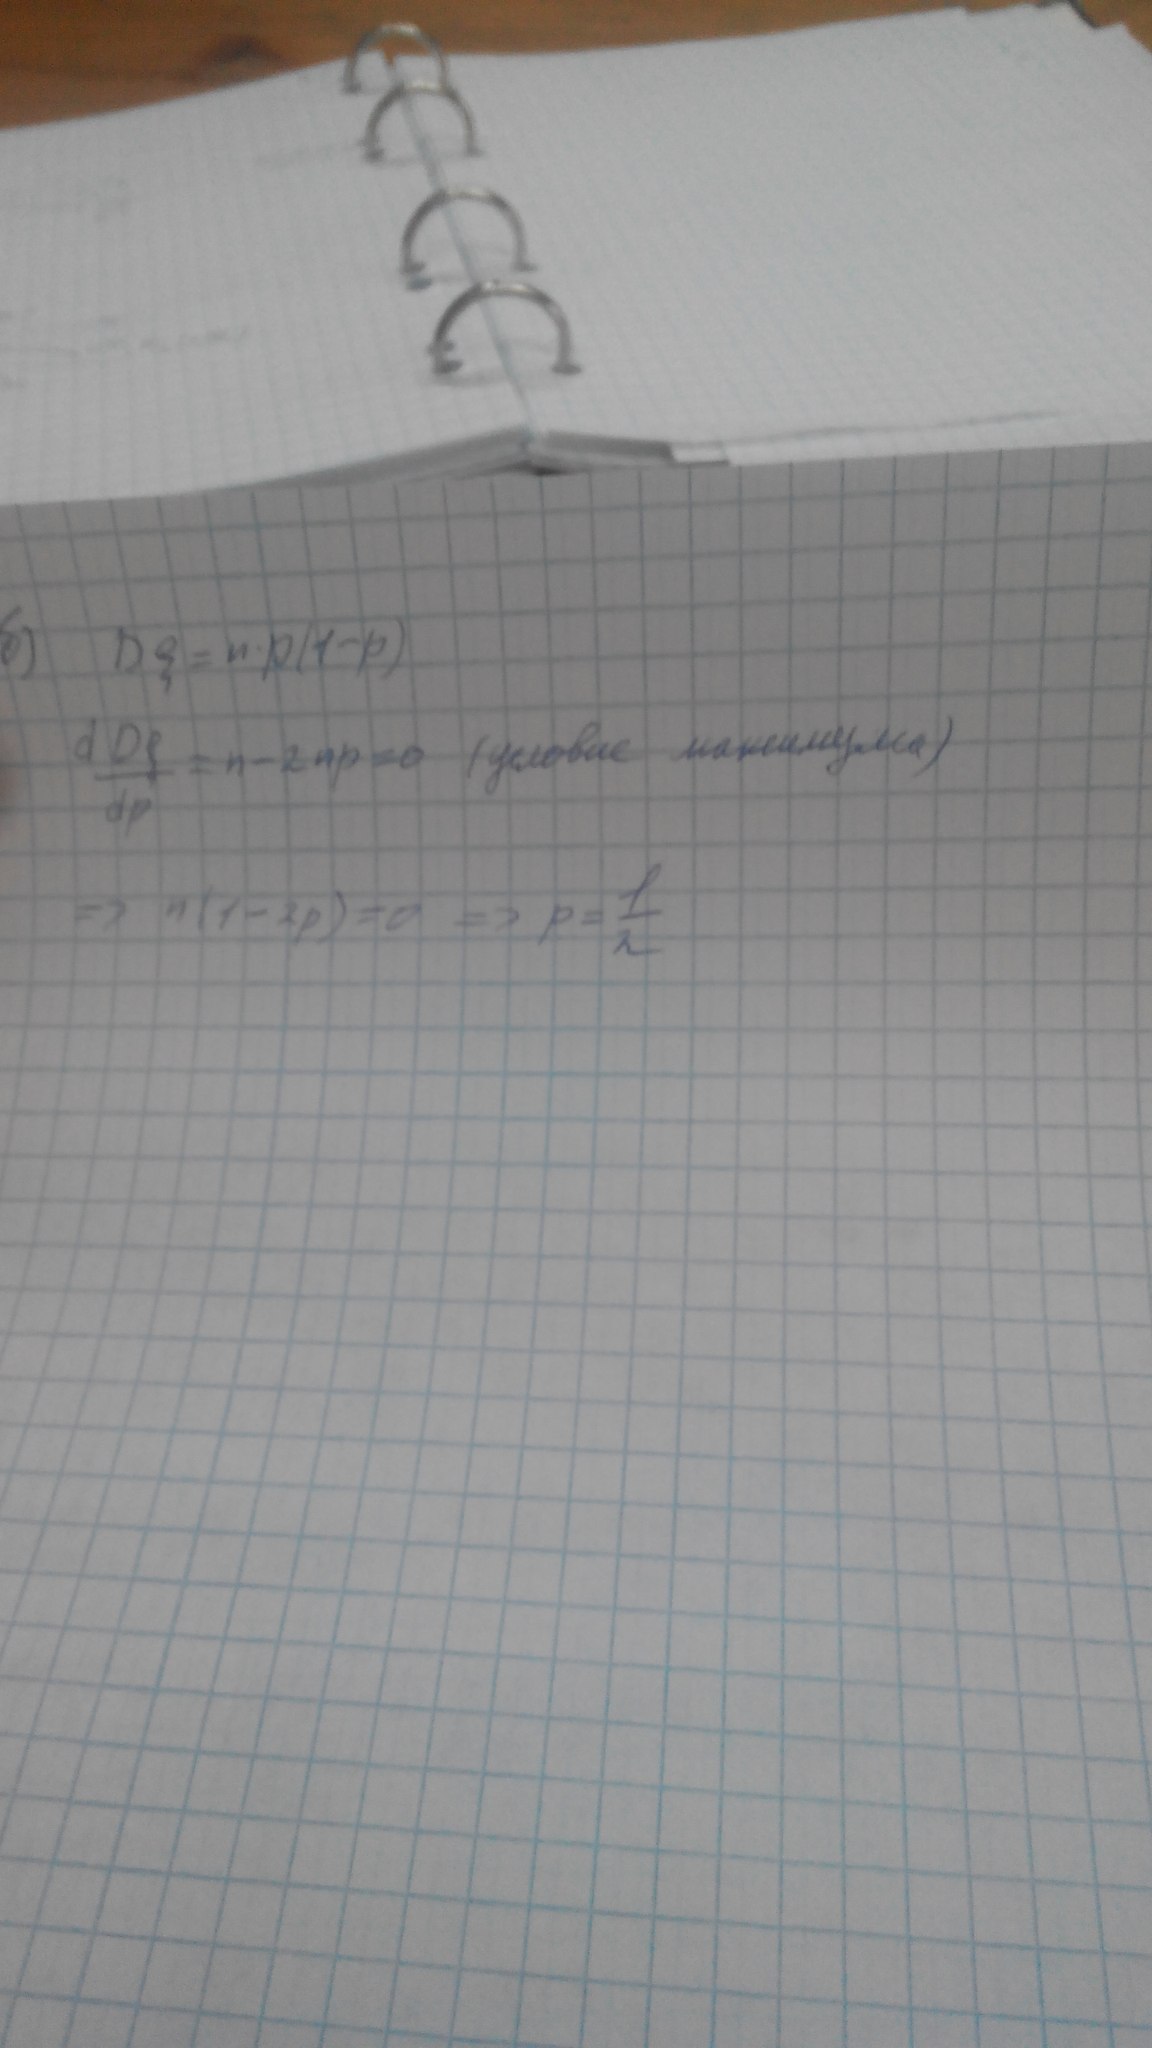 б) Dξ = n·p(1-p)
dDξ/dp = n - 2np = 0 (условие максимума)
=> n(1-2p) = 0 => p = 1/2